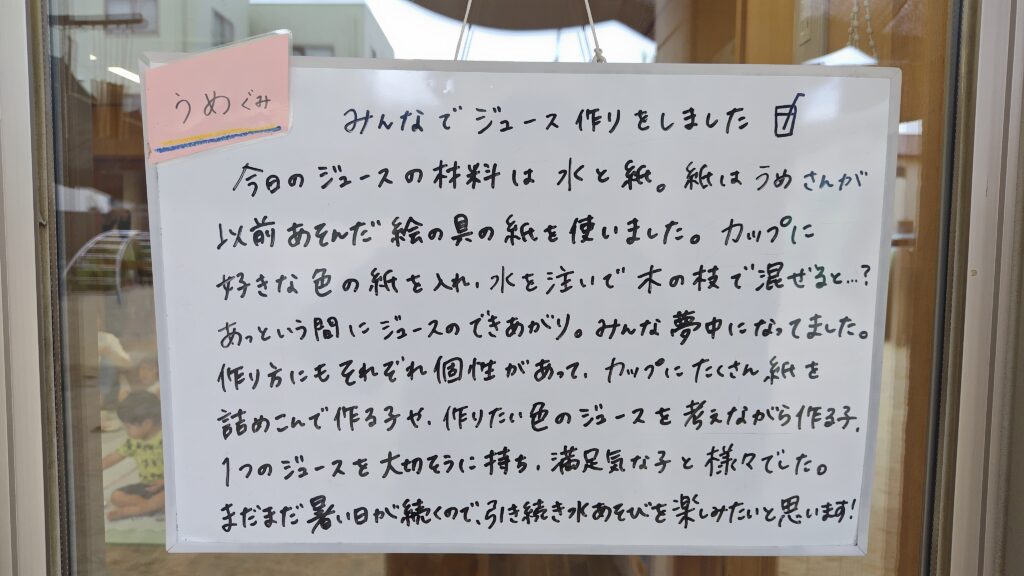 うめぐみ
みんなでジュース作りをしました
今日のジュースの材料は水と紙。紙はうめさんが
以前あそんだ絵の具の紙を使いました。カップに
好きな色の紙を入れ、水を注いで木の枝で混ぜると…?
あっという間にジュースのできあがり。みんな夢中になってました。
作り方にもそれぞれ個性があって、カップにたくさん紙を
詰めこんで作る子や、作りたい色のジュースを考えながら作る子、
1つのジュースを大切そうに持ち、満足気な子と様々でした。
まだまだ暑い日が続くので、引き続き水あそびを楽しみたいと思います!